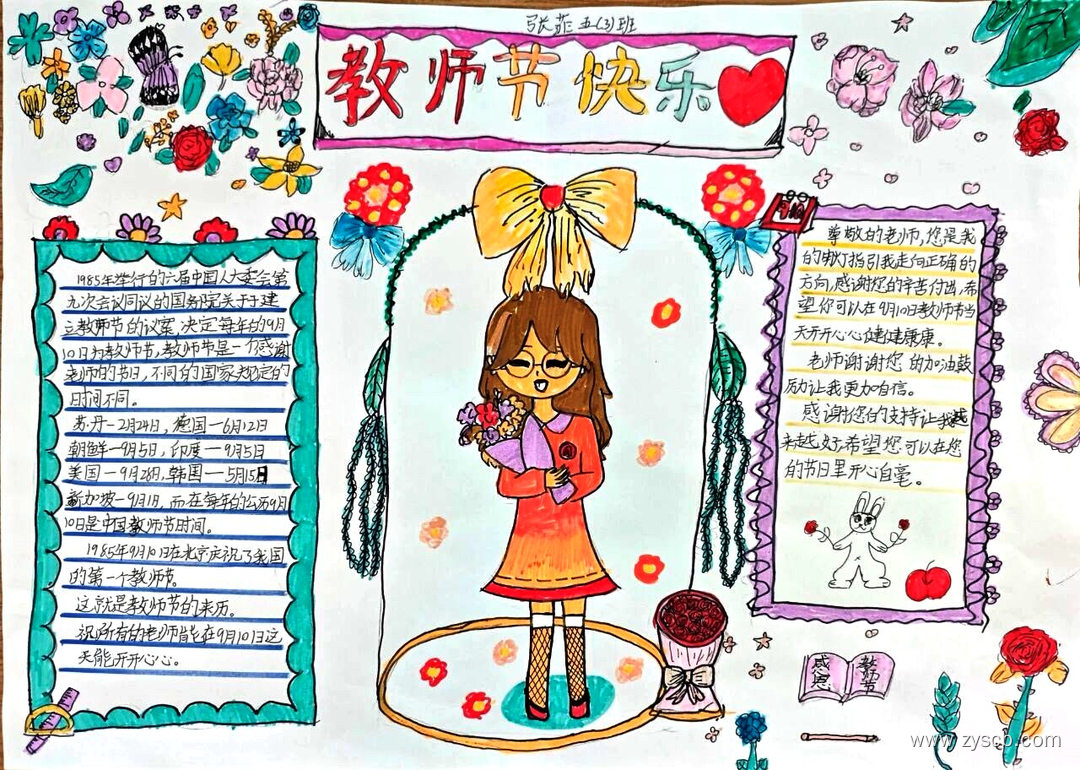 张菲 五(3)班
教师节快乐
1985年举行的六届中国人大委会第
九次会议同议的国务院关于于建
立教师节的议案,决定每年的9月
10日为教师节,教师节是一个感谢
老师的节日,不同的国家规定的
时间不同。
苏丹—2月24日,德国—6月12日
朝鲜—9月5日,印度—9月5日
美国—9月28日,韩国—5月15日
新加坡—9月1日,而在每年的公历9月
10日是中国教师节时间。
1985年9月10日在北京庆祝了我国
的第一个教师节。
这就是教师节的来历。
祝所有的老师皆能在9月10日这
天能开开心心。
尊敬的老师,您是我
的明灯指引我走向正确的
方向,感谢您的辛苦付出,希
望你可以在9月10日教师节当
天开开心心健健康康。
老师谢谢您的加油鼓
励让我更加自信。
感谢您的支持让我越
来越好希望您可以在您
的节日里开心自毫。
感恩
教师节
www.zyscp.com